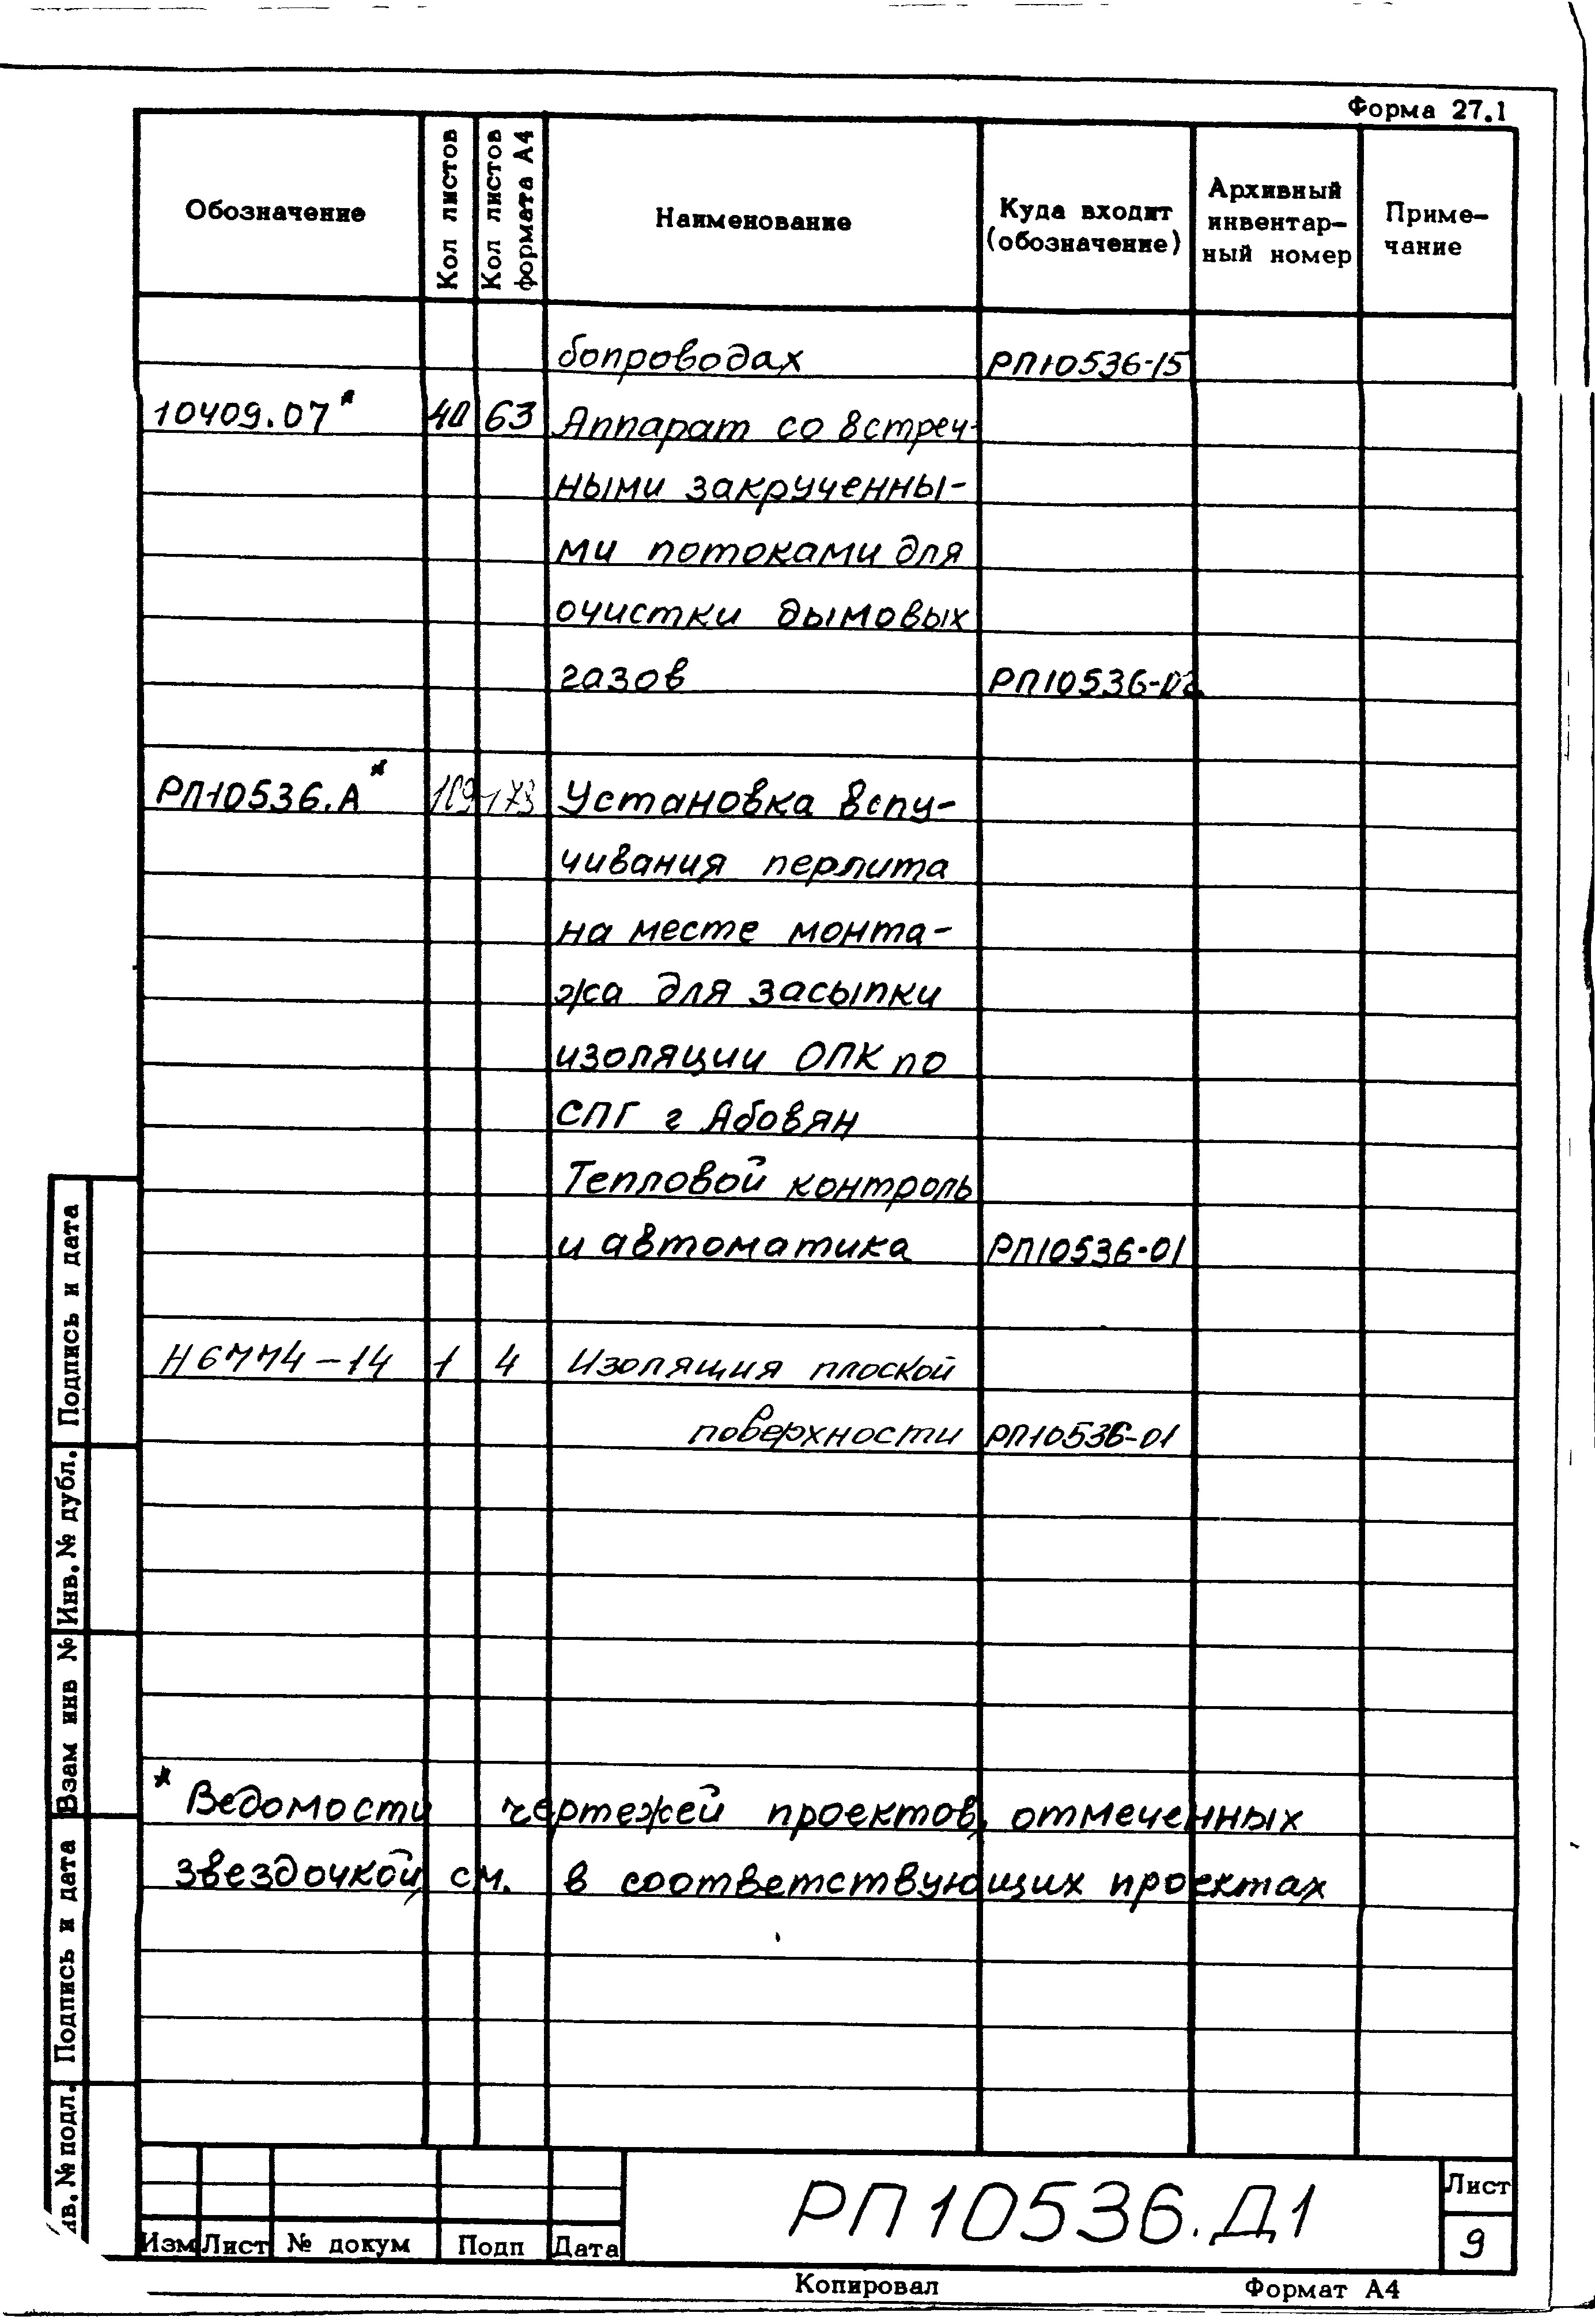 Форма 27.1
Обозначение
Кол листов
Кол листов формата А4
Наименование
Куда входит (обозначение)
Архивный инвентар- ный номер
Приме- чание
бопроводах РП10536-15
10409.07* 40 63 Аппарат со встреч-
ными закрученны-
ми потоками для
очистки дымовых
газов
РП10536.А* Установка вспу-
чивания перлита
на месте монта-
жа для засыпки
изоляции ОПК по
СПГ г Абовян
Тепловой контроль
и автоматика РП10536-01
Н6774-14 1 4 Изоляция плоской
поверхности РП10536-01
* Ведомости чертежей проектов, отмеченных
звездочкой, см. в соответствующих проектах
Подпись и дата
Инв. № дубл.
Взам инв №
Подпись и дата
нв. № подл.
Изм Лист № докум Подп Дата
РП10536.Д1
Лист
9
Копировал Формат А4